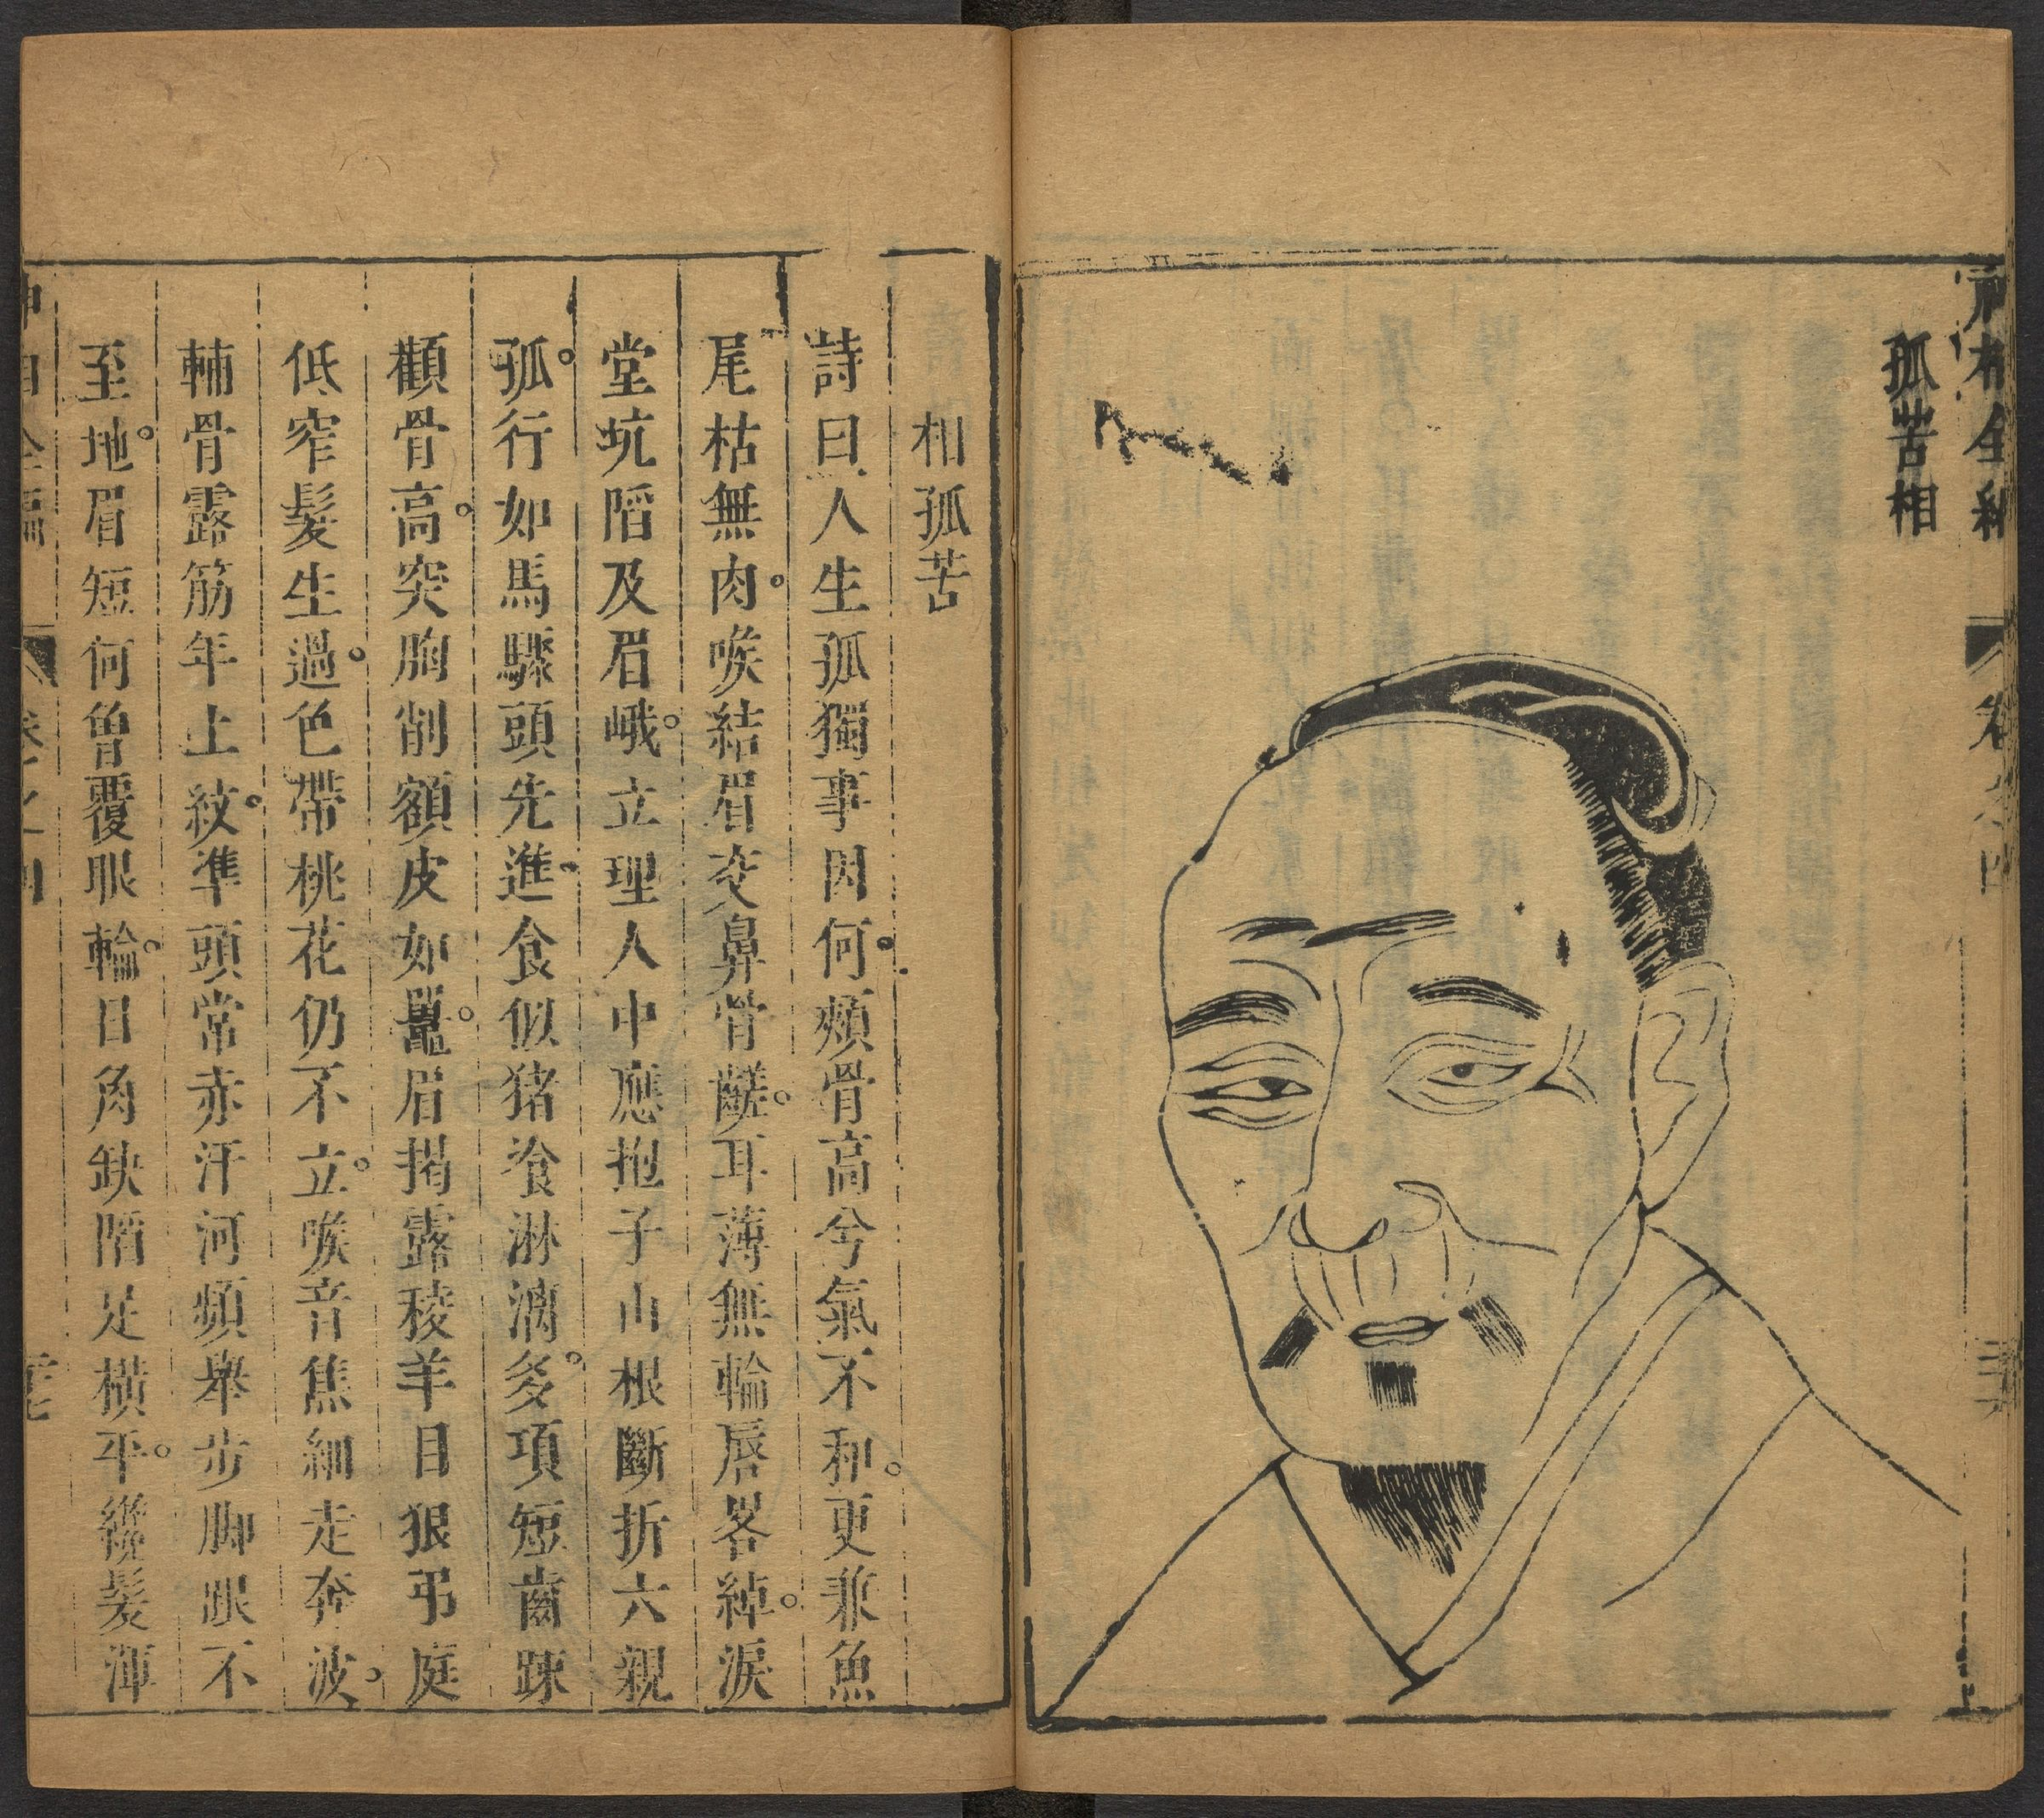 神相全編
卷之四
孤苦相
相孤苦
詩曰人生孤獨事因何。頰骨高兮氣不和。更兼魚
尾枯無肉。喉結眉交鼻骨齹。耳薄無輪唇畧綽。淚
堂坑陷及眉峨。立理人中應抱子山根斷折六親
孤。行如馬驟頭先進。食似猪飡淋漓多。項短齒踈
顴骨高。突胸削額皮如鼍。眉揭露稜羊目狠弔庭
低窄髮生過。色帶桃花仍不立。喉音焦細走奔波。
輔骨露筋年上紋。準頭常赤汗河頻舉步脚跟不
至地。眉短何曾覆眼輪。日角缺陷足橫平。纔髮渾
神相全編
卷之四